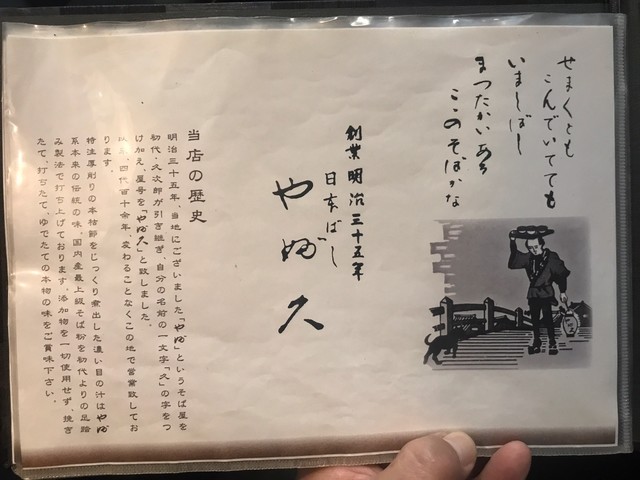 せまくとも
こんでいてても
いましばし
まつたかいあり
ここのそばかな
創業明治三十五年
日本ばし
やぶ久
当店の歴史
明治三十五年、当地にございました「やぶ」というそば屋を
初代・久次郎が引き継ぎ、自分の名前の一文字「久」の字をつ
け加え、屋号を「やぶ久」と致しました。
以来、四代百十余年、変わることなくこの地で営業致してお
ります。
特注厚削りの本枯節をじっくり煮出した濃い目の汁はやぶ
系本来の伝統の味、国内産最上級そば粉を初代よりの足踏
み製法で打ち上げております。添加物を一切使用せず、挽き
たて、打ちたて、ゆでたての本物の味をご賞味下さい。